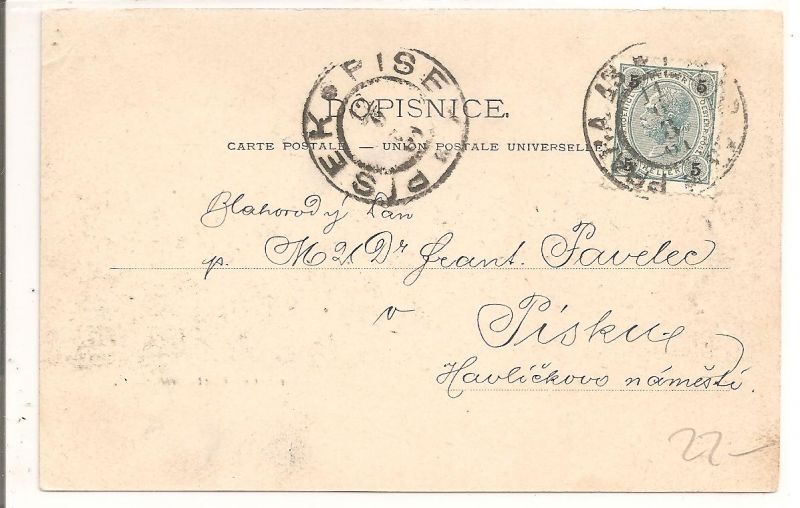 PISEK PISEK
DOPISNICE.
CARTE POSTALE — UNION POSTALE UNIVERSELLE
5 5
5 5
Blahorodý Pan
p. MUDr Frant. Pavelec
v
Písku
Havlíčkovo náměstí.
22-